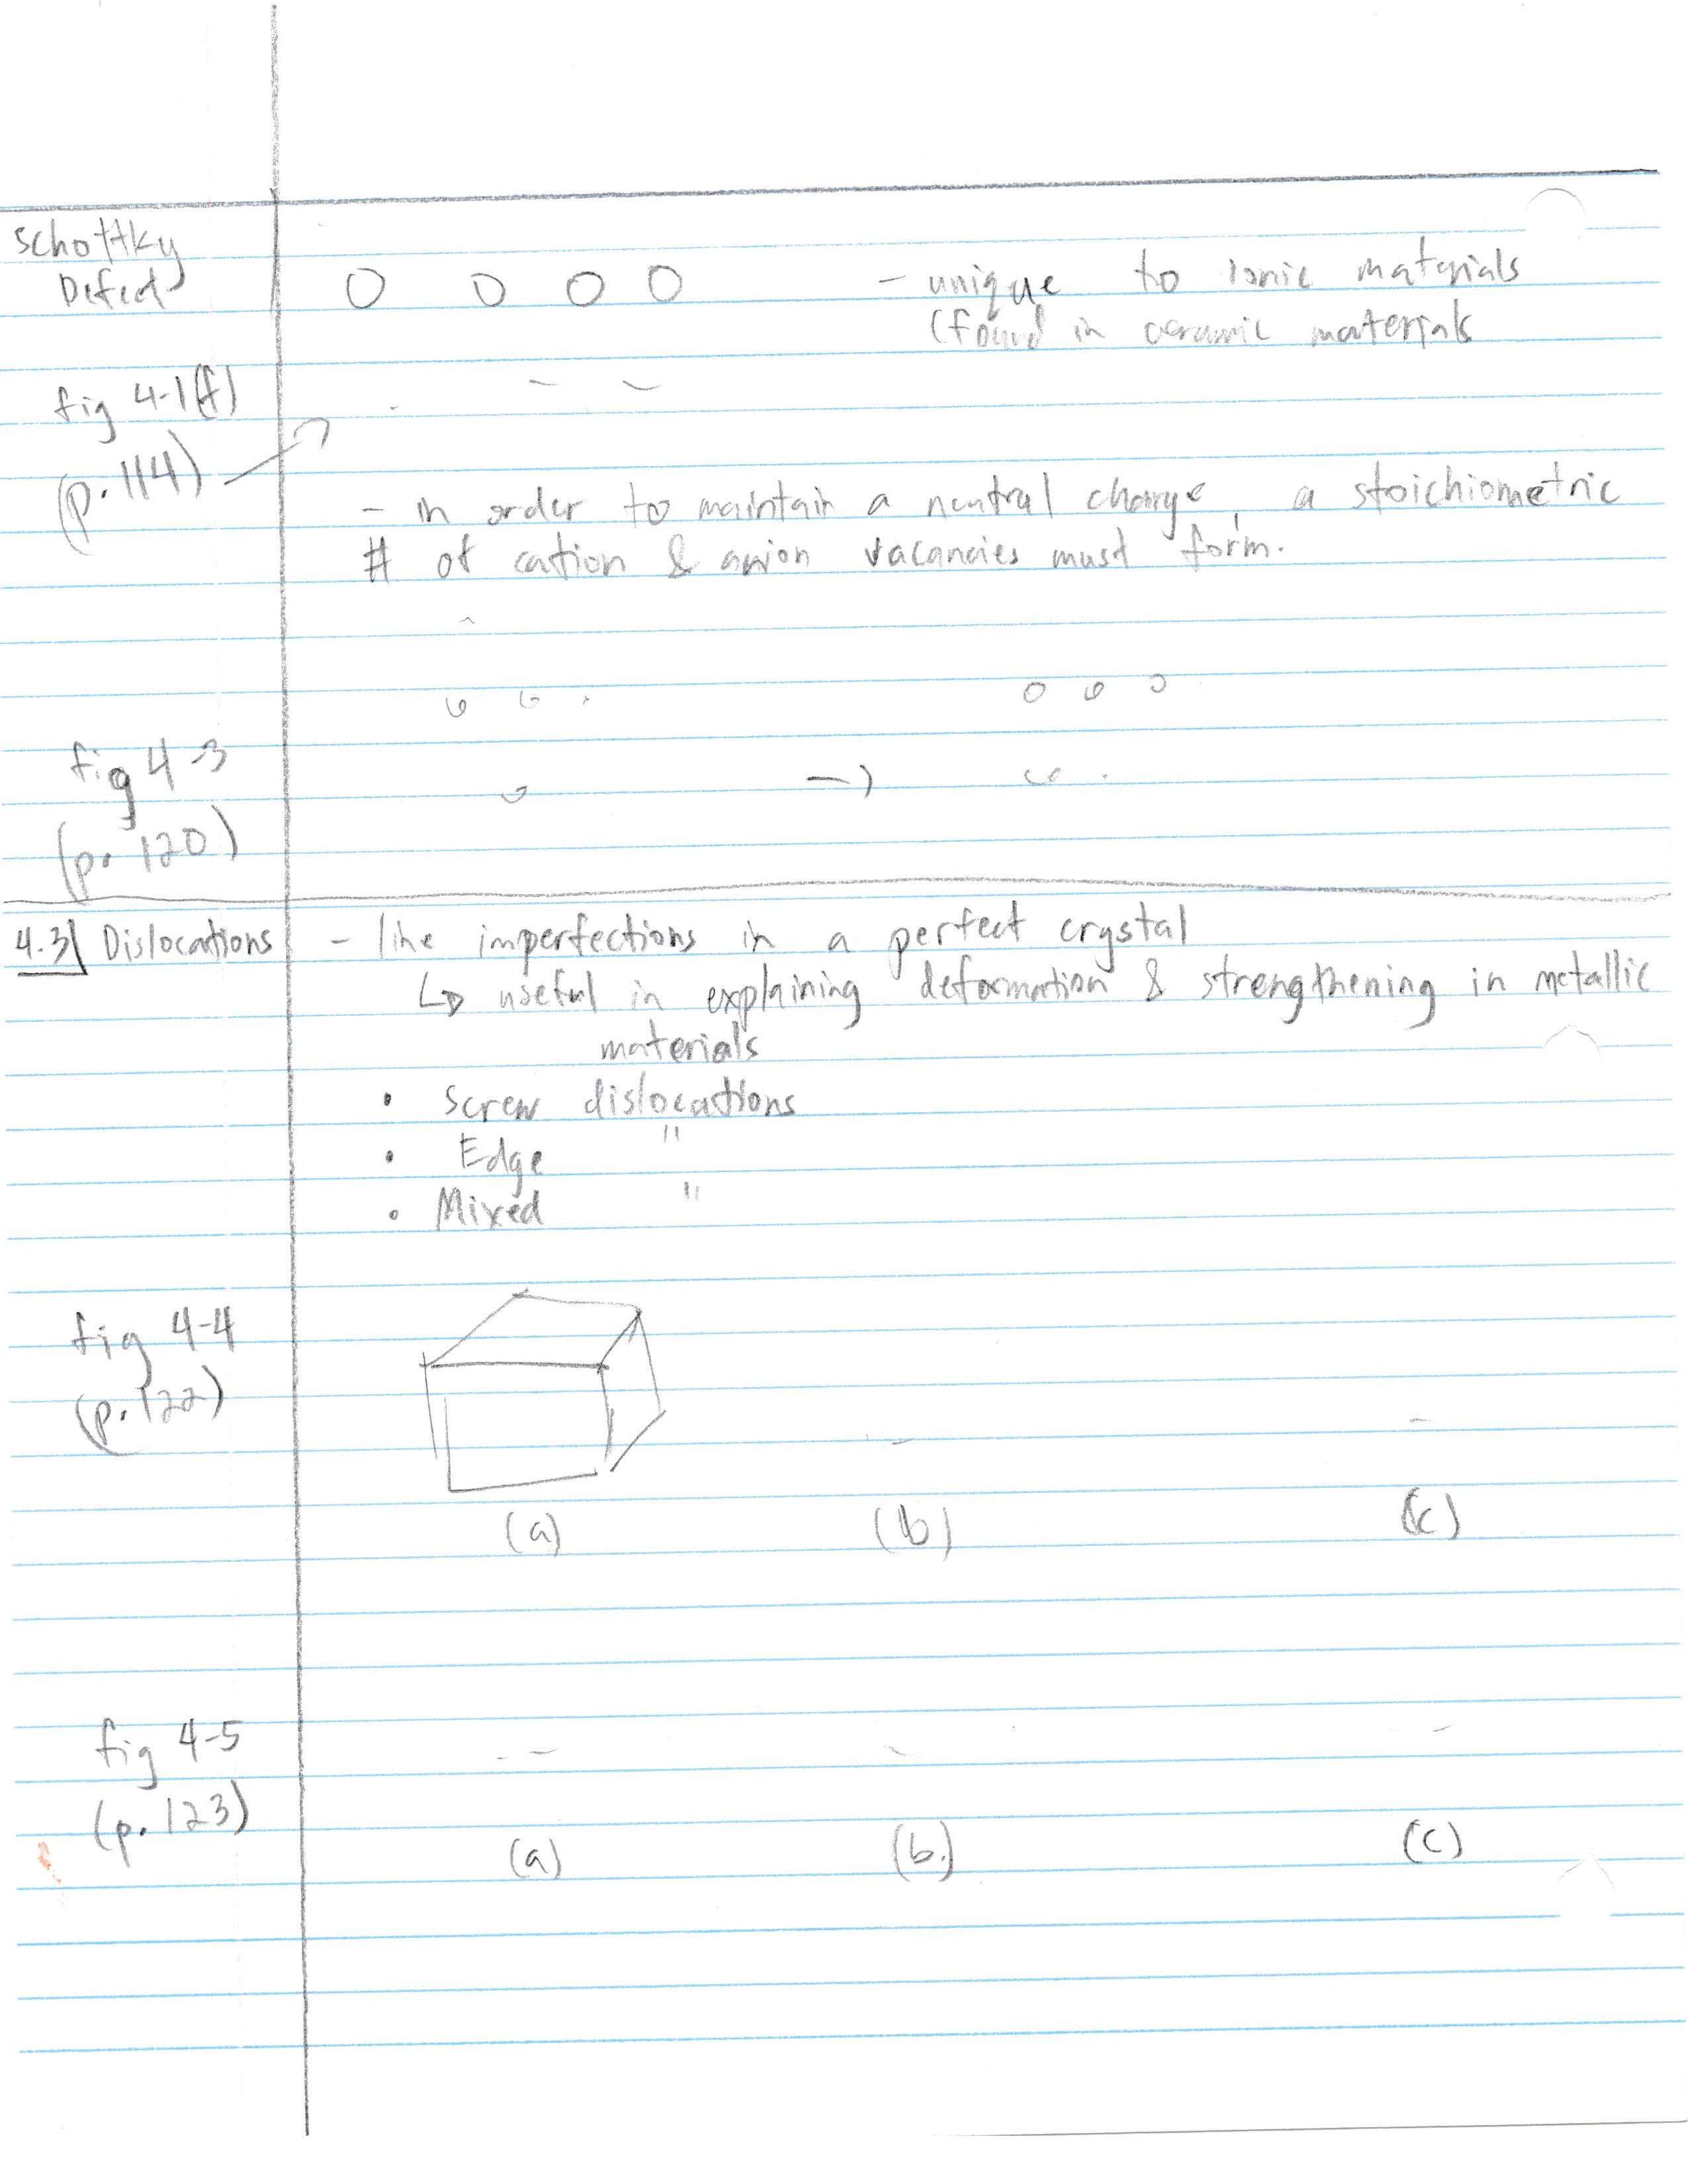 Schottky
Defect
- unique to ionic materials
(found in ceramic materials
fig 4-1(f)
(p. 114)
- in order to maintain a neutral charge, a stoichiometric
# of cation & anion vacancies must form.
fig 4-3
(p. 120)
4.3 Dislocations - line imperfections in a perfect crystal
↳ useful in explaining deformation & strengthening in metallic
materials
• Screw dislocations
• Edge "
• Mixed "
fig 4-4
(p. 122)
(a) (b) (c)
fig 4-5
(p. 123)
(a) (b.) (c)